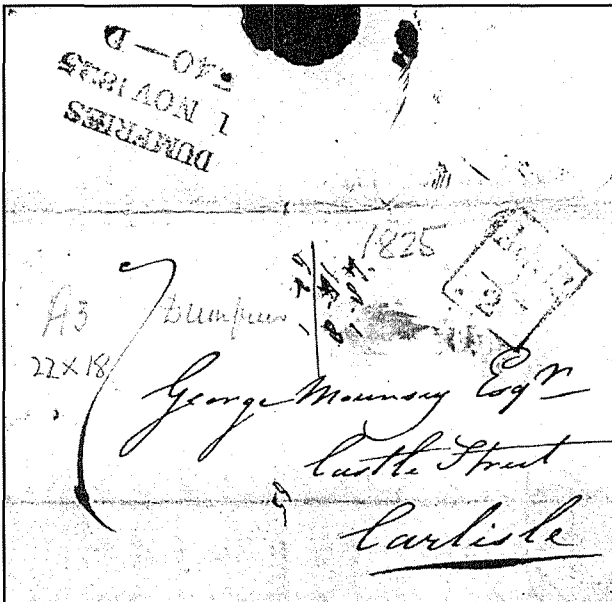 DUMFRIES
1 NOV 1825
540—D
1825
A3
22×18
7
Dumfries
George Mounsey Esqr
Castle Street
Carlisle